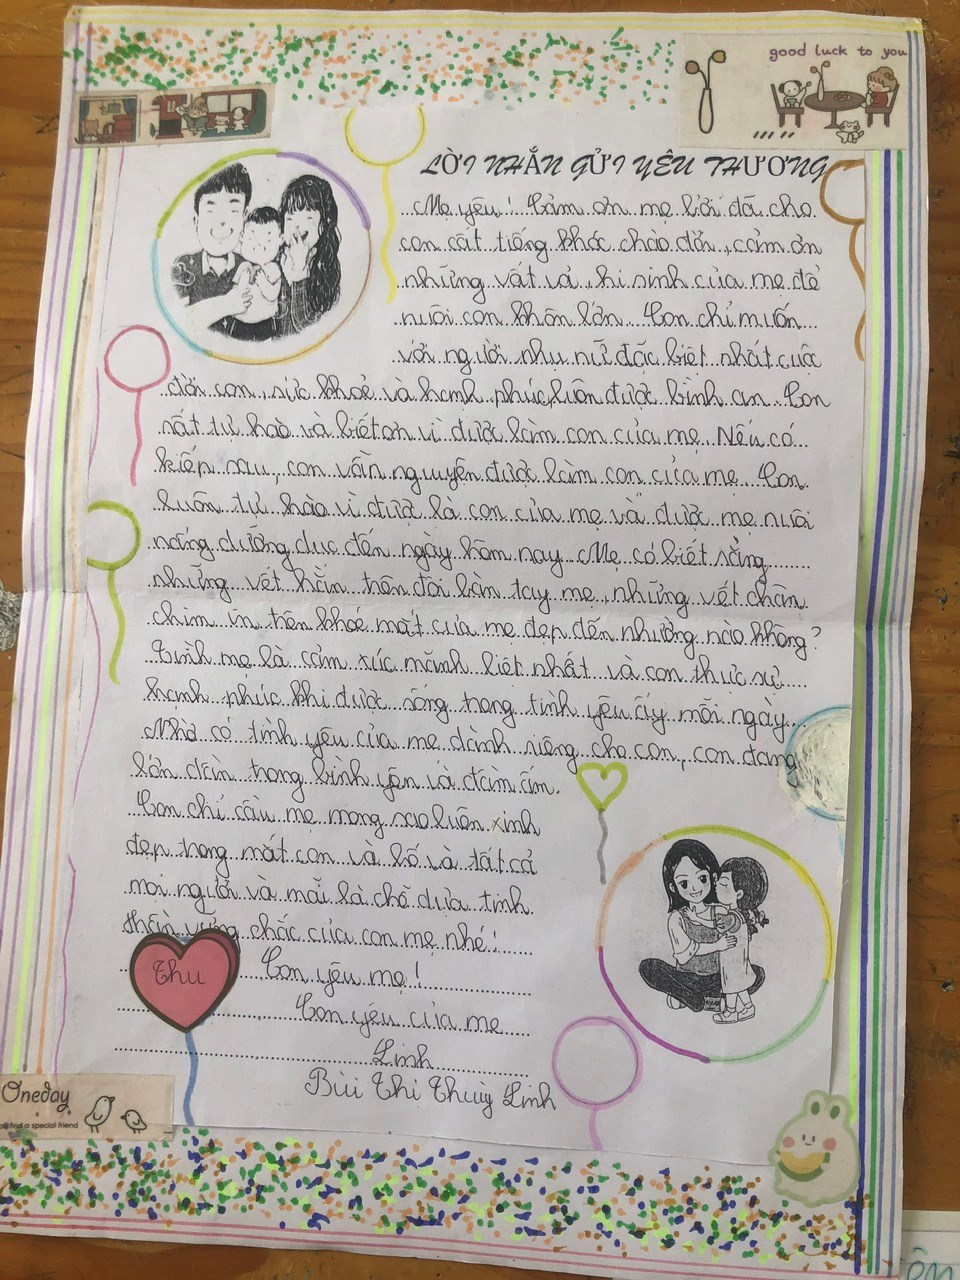 good luck to you
LỜI NHẮN GỬI YÊU THƯƠNG
Mẹ yêu! Cảm ơn mẹ bởi đã cho
con cất tiếng khóc chào đời, cảm ơn
những vất vả, hi sinh của mẹ để
nuôi con khôn lớn. Con chỉ muốn
với người phụ nữ đặc biệt nhất cuộc
đời con, sức khoẻ và hạnh phúc, luôn được bình an. Con
rất tự hào và biết ơn vì được làm con của mẹ. Nếu có
kiếp sau, con vẫn nguyện được làm con của mẹ. Con
luôn tự hào vì được là con của mẹ và được mẹ nuôi
nấng dưỡng dục đến ngày hôm nay. Mẹ có biết rằng
những vết hằn trên đôi bàn tay mẹ, những vết chân
chim in trên khoé mắt của mẹ đẹp đến nhường nào không?
Tình mẹ là cảm xúc mãnh liệt nhất và con thực sự
hạnh phúc khi được sống trong tình yêu ấy mỗi ngày.
Nhờ có tình yêu của mẹ dành riêng cho con, con đang
lớn dần trong bình yên và đầm ấm.
Con chỉ cầu mong sao luôn xinh
đẹp trong mắt con và bố và tất cả
mọi người và mãi là chỗ dựa tinh
thần vững chắc của con mẹ nhé!
Thu
Con yêu mẹ!
Con yêu của mẹ
Linh
Bùi Thị Thuỳ Linh
Oneday
find a special friend